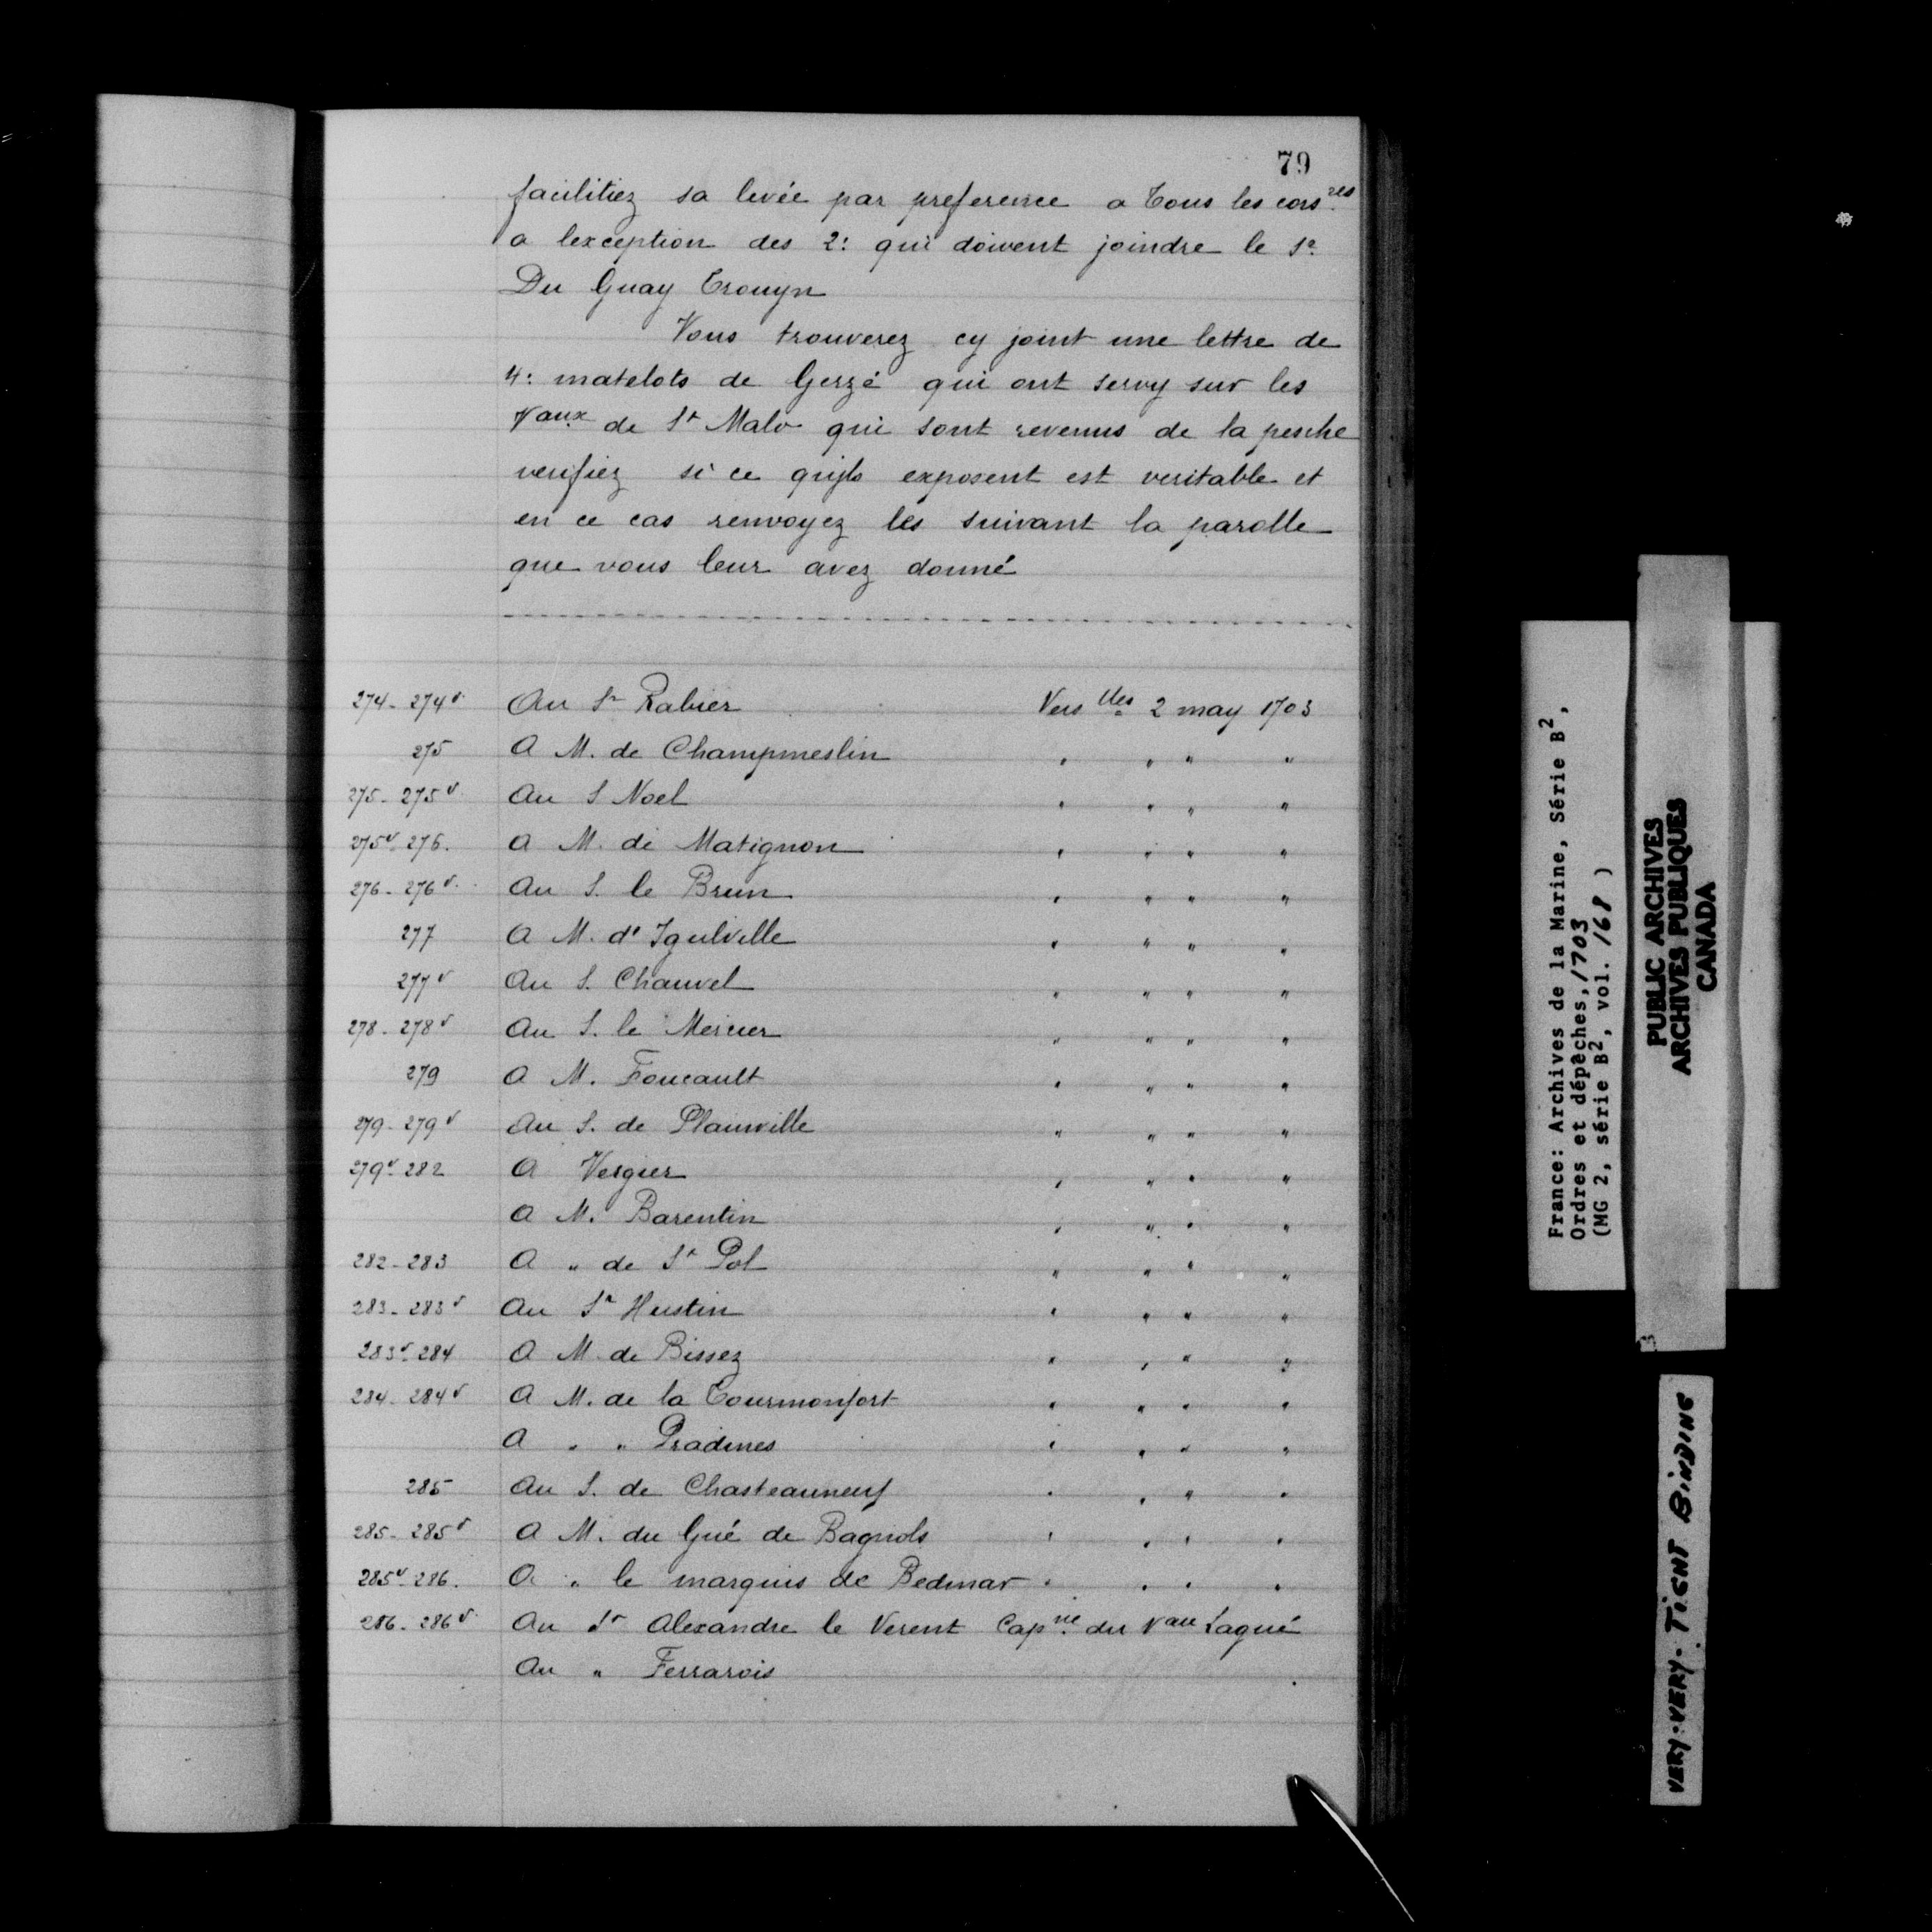 79
facilitiez sa levée par preference a tous les cors.res
a lexception des 2: qui doivent joindre le Sr
Du Guay Trouyn
Vous trouverez cy joint une lettre de
4: matelots de Gerzé qui ont servy sur les
Vaux de St Malo qui sont revenus de la pesche
verifiez si ce quils exposent est veritable et
en ce cas renvoyez les suivant la parolle
que vous leur avez donné
274 - 274v. Au Sr Rabier Verslles 2 may 1703
275 A M. de Champmeslin " " " "
275 - 275v. Au S Noel " " " "
275v - 276. A M. de Matignon " " " "
276 - 276v. Au S. le Brun " " " "
277 A M. d'Igulville " " " "
277v Au S. Chauvel " " " "
278 - 278v Au S. le Mercier " " " "
279 A M. Foucault " " " "
279 - 279v Au S. de Plainville " " " "
279v - 282 A Vergier " " " "
A M. Barentin " " " "
282 - 283 A " de St Pol " " " "
283 - 283v Au Sr Hustin " " " "
283v - 284 A M. de Bissez " " " "
284 - 284v A M. de la Tourmonfort " " " "
A " " Pradines " " " "
285 Au S. de Chasteauneuf " " " "
285 - 285v A M. du Gué de Bagnols " " " "
285v - 286. A " le marquis de Bedmar " " " "
286 - 286v. Au Sr Alexandre le Verent Capne du Vau Lagué
Au " Ferrarois
France: Archives de la Marine, Série B2,
Ordres et dépêches, 1703
(MG 2, série B2, vol. 168 )
PUBLIC ARCHIVES
ARCHIVES PUBLIQUES
CANADA
VERY-VERY-TIGHT BINDING